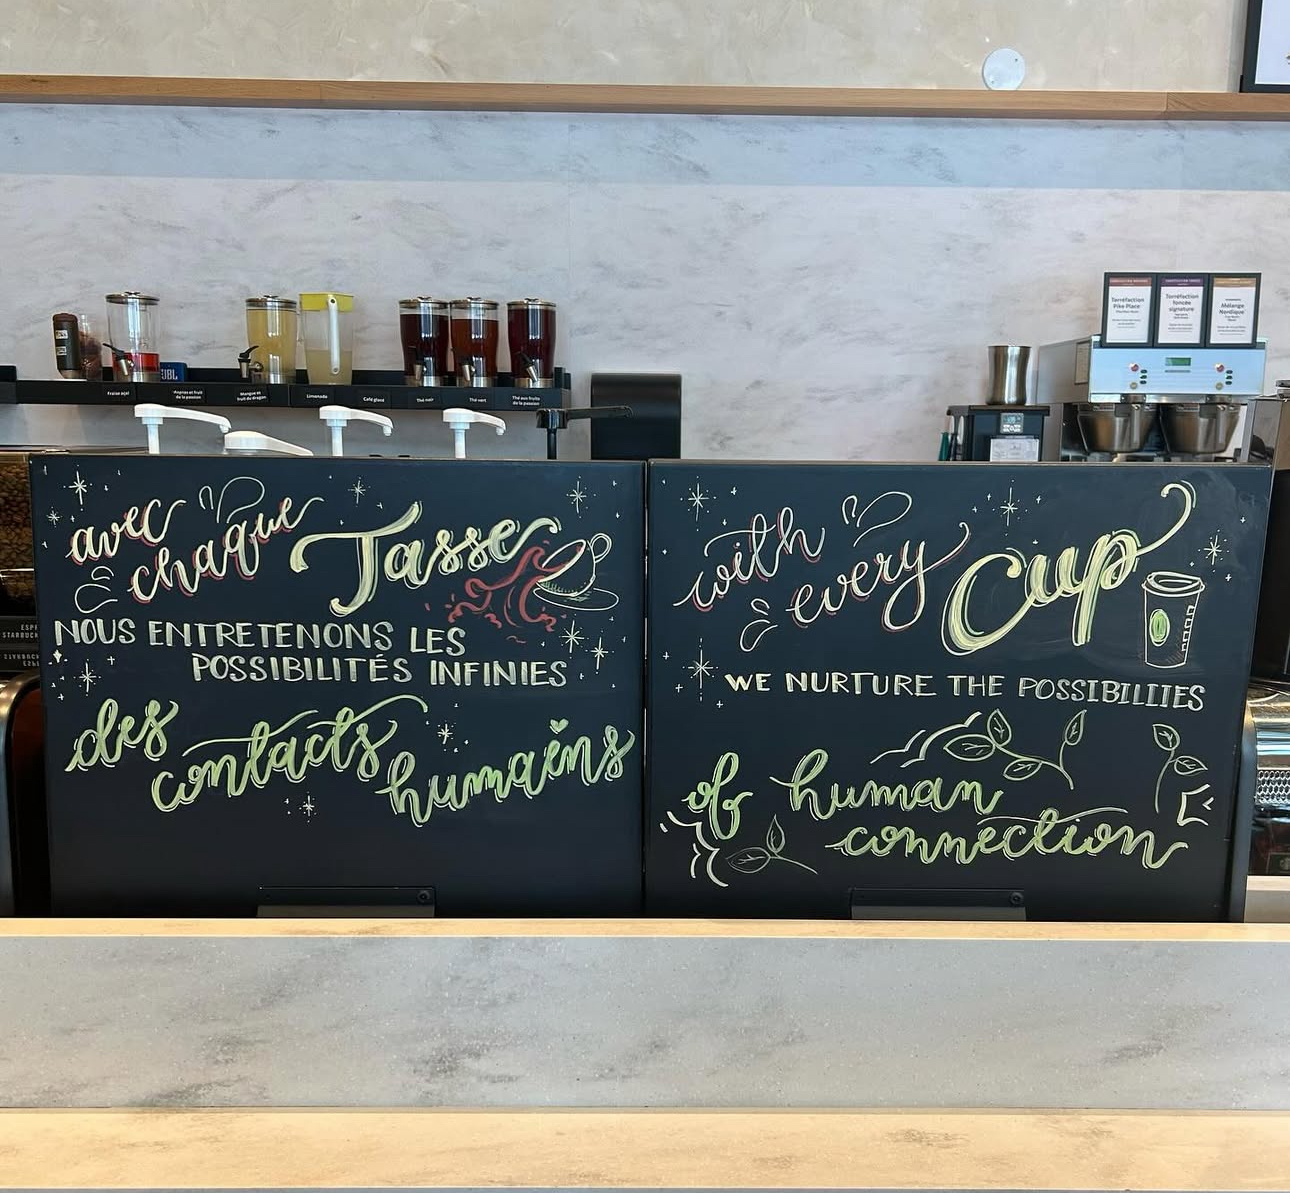 Torréfaction
Pike Place
Torréfaction
foncée
signature
Mélange
Nordique
JBL
Fraise açaï
Mangue et
fruit du dragon
Limonade
Café glacé
Thé noir
Thé vert
Thé aux fruits
de la passion
avec
chaque
Tasse
NOUS ENTRETENONS LES
POSSIBILITÉS INFINIES
des
contacts
humains
with
every
Cup
WE NURTURE THE POSSIBILITIES
of human
connection
STARBUCK